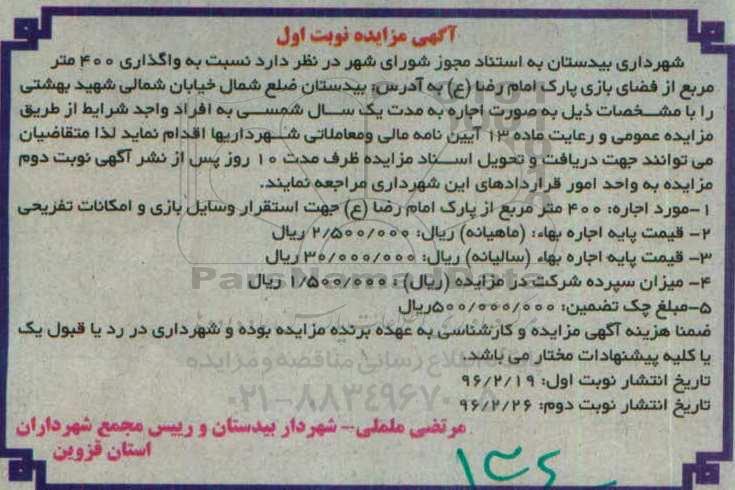 آگهی مزایده نوبت اول
شهرداری بیدستان به استناد مجوز شورای شهر در نظر دارد نسبت به واگذاری ۴۰۰ متر
مربع از فضای بازی پارک امام رضا (ع) به آدرس: بیدستان ضلع شمال خیابان شمالی شهید بهشتی
را با مشخصات ذیل به صورت اجاره به مدت یک سال شمسی به افراد واجد شرایط از طریق
مزایده عمومی و رعایت ماده ۱۳ آیین نامه مالی ومعاملاتی شهرداریها اقدام نماید لذا متقاضیان
می توانند جهت دریافت و تحویل اسناد مزایده ظرف مدت ۱۰ روز پس از نشر آگهی نوبت دوم
مزایده به واحد امور قراردادهای این شهرداری مراجعه نمایند.
۱-مورد اجاره: ۴۰۰ متر مربع از پارک امام رضا (ع) جهت استقرار وسایل بازی و امکانات تفریحی
۲- قیمت پایه اجاره بهاء: (ماهیانه) ریال: ۲/۵۰۰/۰۰۰ ریال
۳- قیمت پایه اجاره بهاء (سالیانه) ریال: ۳۰/۰۰۰/۰۰۰ ریال
ParsNamadData
۴- میزان سپرده شرکت در مزایده (ریال) : ۱/۵۰۰/۰۰۰ ریال
۵-مبلغ چک تضمین: ۵۰۰/۰۰۰/۰۰۰ریال
ضمنا هزینه آگهی مزایده و کارشناسی به عهده برنده مزایده بوده و شهرداری در رد یا قبول یک
یا کلیه پیشنهادات مختار می باشد.
تاریخ انتشار نوبت اول: ۹۶/۲/۱۹
۰۲۱-۸۸۳۴۹۶۷۰
تاریخ انتشار نوبت دوم: ۹۶/۲/۲۶
مرتضی ململی- شهردار بیدستان و رییس مجمع شهرداران
استان قزوین